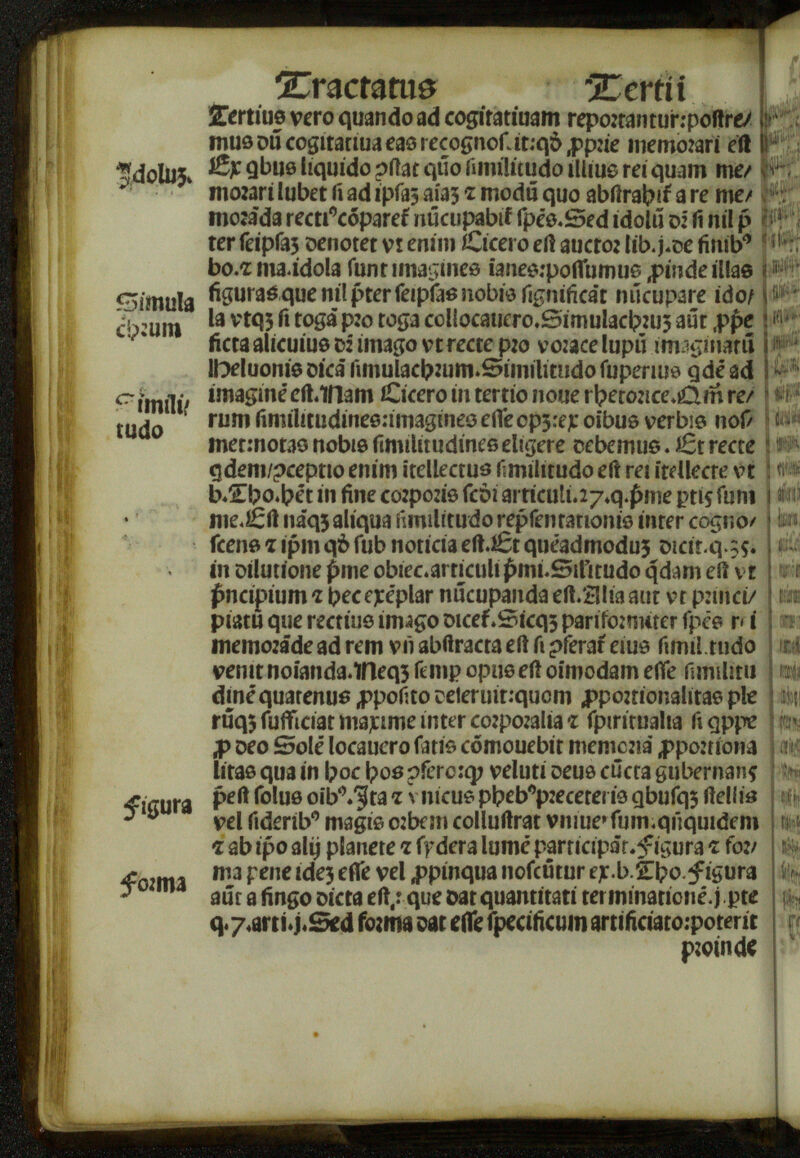 Tractatus Tertii
Tertius vero quando ad cogitatiuam reportantur:postre/
mus dū cogitatiua eas recognoscit:qð ꝓprie memorari est
Idoluʒ. Ex qbus liquido ꝯstat quo similitudo illius rei quam me/
morari lubet si ad ipsaʒ aiaʒ ⁊ modū quo abstrahit᷑ a re me/
morāda rectiꝰ cōparet᷑ nūcupabit᷑ spēs. Sed idolū dꝛ si nil p̄
ter seipsaʒ denotet vt enim Cicero est auctor lib.j. de finibꝰ
bo. ⁊ ma. idola sunt imagines ianes: possumus ꝓinde illas
Simula figuras que nil p̄ter seipsas nobis significāt nūcupare ido/
chrum la vtqʒ si togā pro toga collocauero. Simulachruʒ aūt ꝓpe
ficta alicuius dꝛ imago vt recte pro vorace lupū imaginatū
Heluonis dicā simulachrum. Similitudo superius qdē ad
Simili/ imaginē est. Nam Cicero in tertio noue rhetorice. Qm̄ re/
tudo rum similitudines: imagines esse opʒ: ex oibus verbis nos/
met: notas nobis similitudines eligere debemus. Et recte
qdem/ꝯceptio enim ītellectus similitudo est rei ītellecte vt
b. Tho. hēt in fine corporis scði articuli. 27. q. p̄me ptis sum
me. Est nāqʒ aliqua similitudo rep̄sentationis inter cogno/
scens ⁊ ipm qð sub noticia est. Et quēadmoduʒ dicit. q. 35.
in dilutione p̄me obiec. articuli p̄mi. Sil'itudo q̇dam est vt
p̄ncipium ⁊ hec exēplar nūcupanda est. Alia aut vt princi/
piatū que rectius imago dicet᷑. Sicqʒ pariformiter spēs rei
memorāde ad rem vn̄ abstracta est si ꝯferat᷑ eius similitudo
venit noianda. Neqʒ semp opus est oimodam esse similitu
dinē quatenus ꝓposito deseruit: quom ꝓportionalitas ple
rūqʒ sufficiat maxime inter corporalia ⁊ spiritualia si qppe
ꝓ deo Solē locauero satis cōmouebit memoriā ꝓportiona
litas qua in hoc hos ꝯfero: qꝫ veluti deus cūcta gubernans
Figura p̄est solus oibꝰ. Ita ⁊ vnicus phebꝰ p̄receteris qbusqʒ stellis
vel sideribꝰ magis orbem collustrat vniuersum. qn̄quidem
⁊ ab ipo alij planete ⁊ sydera lumē participāt. Figura ⁊ for/
Forma ma pene ideʒ esse vel ꝓpinqua noscūtur ex. b. Tho. Figura
aūt a fingo dicta est,: que dat quantitati terminationē. j. pte
q. 7. arti. j. Sed forma dat esse specificum artificiato: poterit
proinde